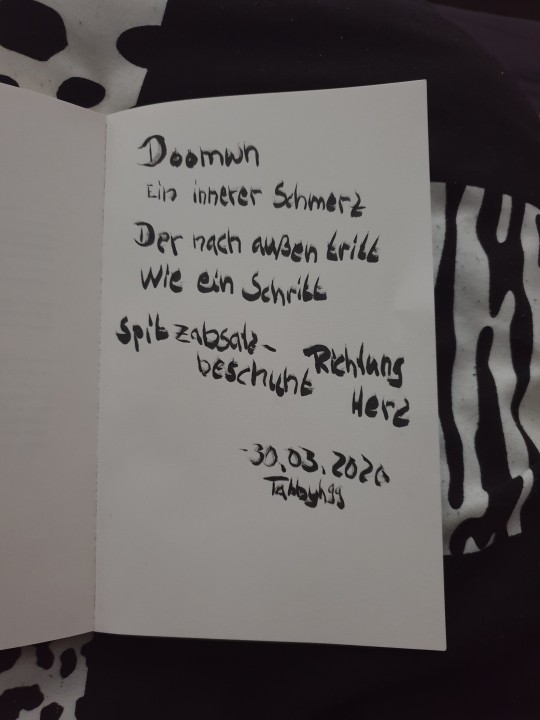 Doomwn
Ein innerer Schmerz
Der nach außen tritt
Wie ein Schritt
Spitzabsatz-
beschuht Richtung
Herz
-30.03.2020